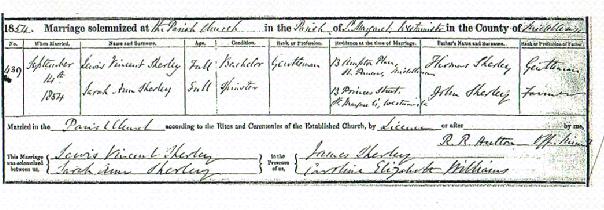 1854. Marriage solemnized at the Parish Church in the Parish of St. Margaret, Westminster in the County of Middlesex
No. When Married. Name and Surname. Age. Condition. Rank or Profession. Residence at the time of Marriage. Father's Name and Surname. Rank or Profession of Father
439 September 14th 1854 Lewis Vincent Sherley Full Bachelor Gentleman 13 Place St. Pancras, Middlesex Thomas Sherley Gentleman
Sarah Ann Sherley Full Spinster 13 Princes Street St. Margaret's, Westminster John Sherley Farmer
Married in the Parish Church according to the Rites and Ceremonies of the Established Church, by Licence or after by me,
R. R. Hutton
This Marriage was solemnized between us, Lewis Vincent Sherley In the Presence of us, Sherley
Sarah Ann Sherley Caroline Elizabeth Williams